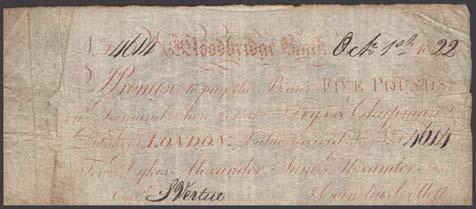 No. 4614 Woodbridge Bank Octr. 10th 1822
I Promise to pay the Bearer FIVE POUNDS
on Demand here or at Frys & Chapman
Bankers LONDON Value received 4614
For Dykes Alexander Alexander
Entd. S Vertue Cornelius Collett